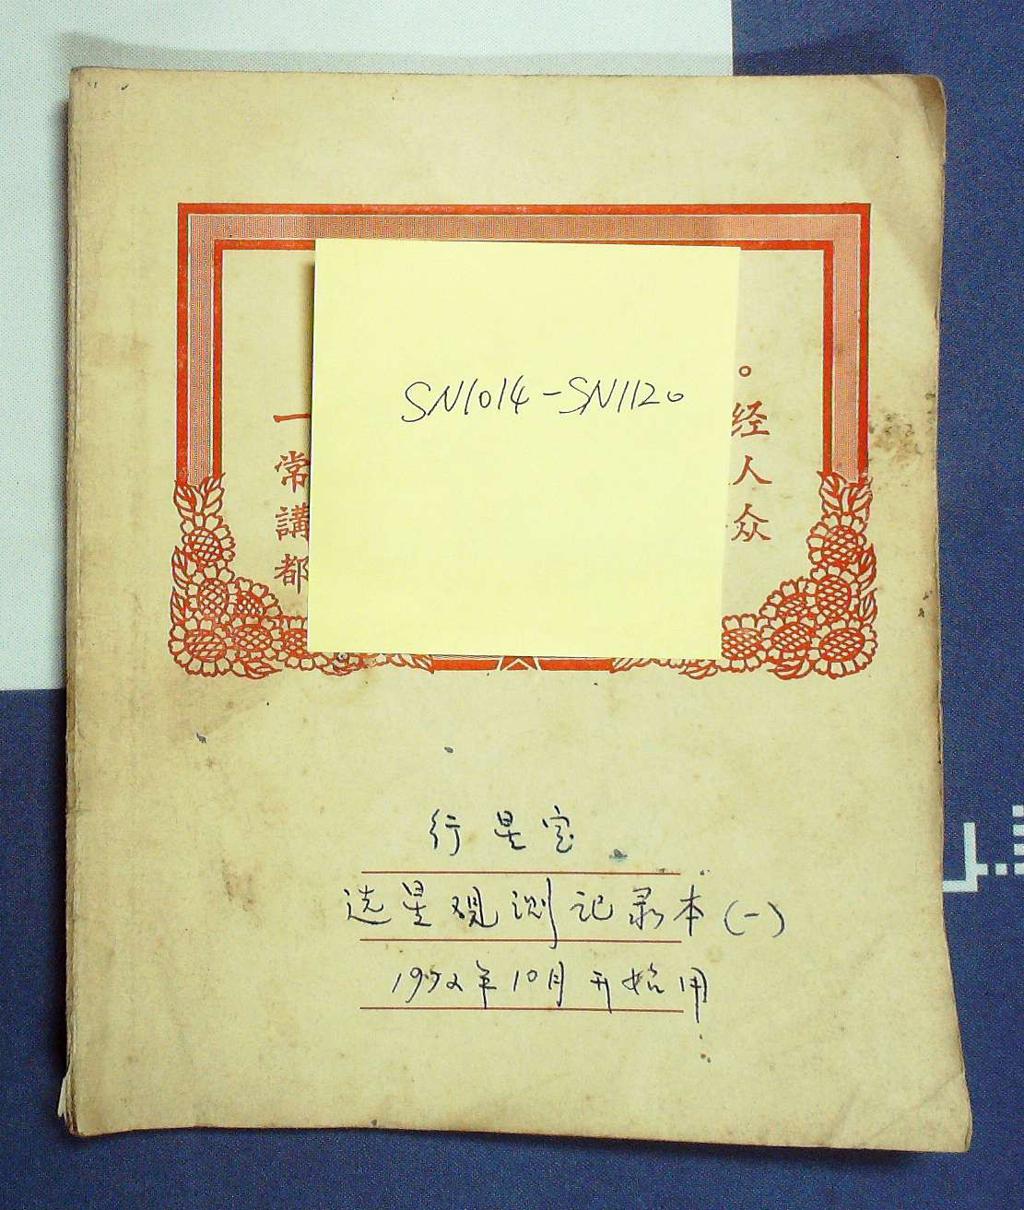 SN1014-SN1120
。经人众
一常講都
行星室
选星观测记录本(一)
1972年10月开始用